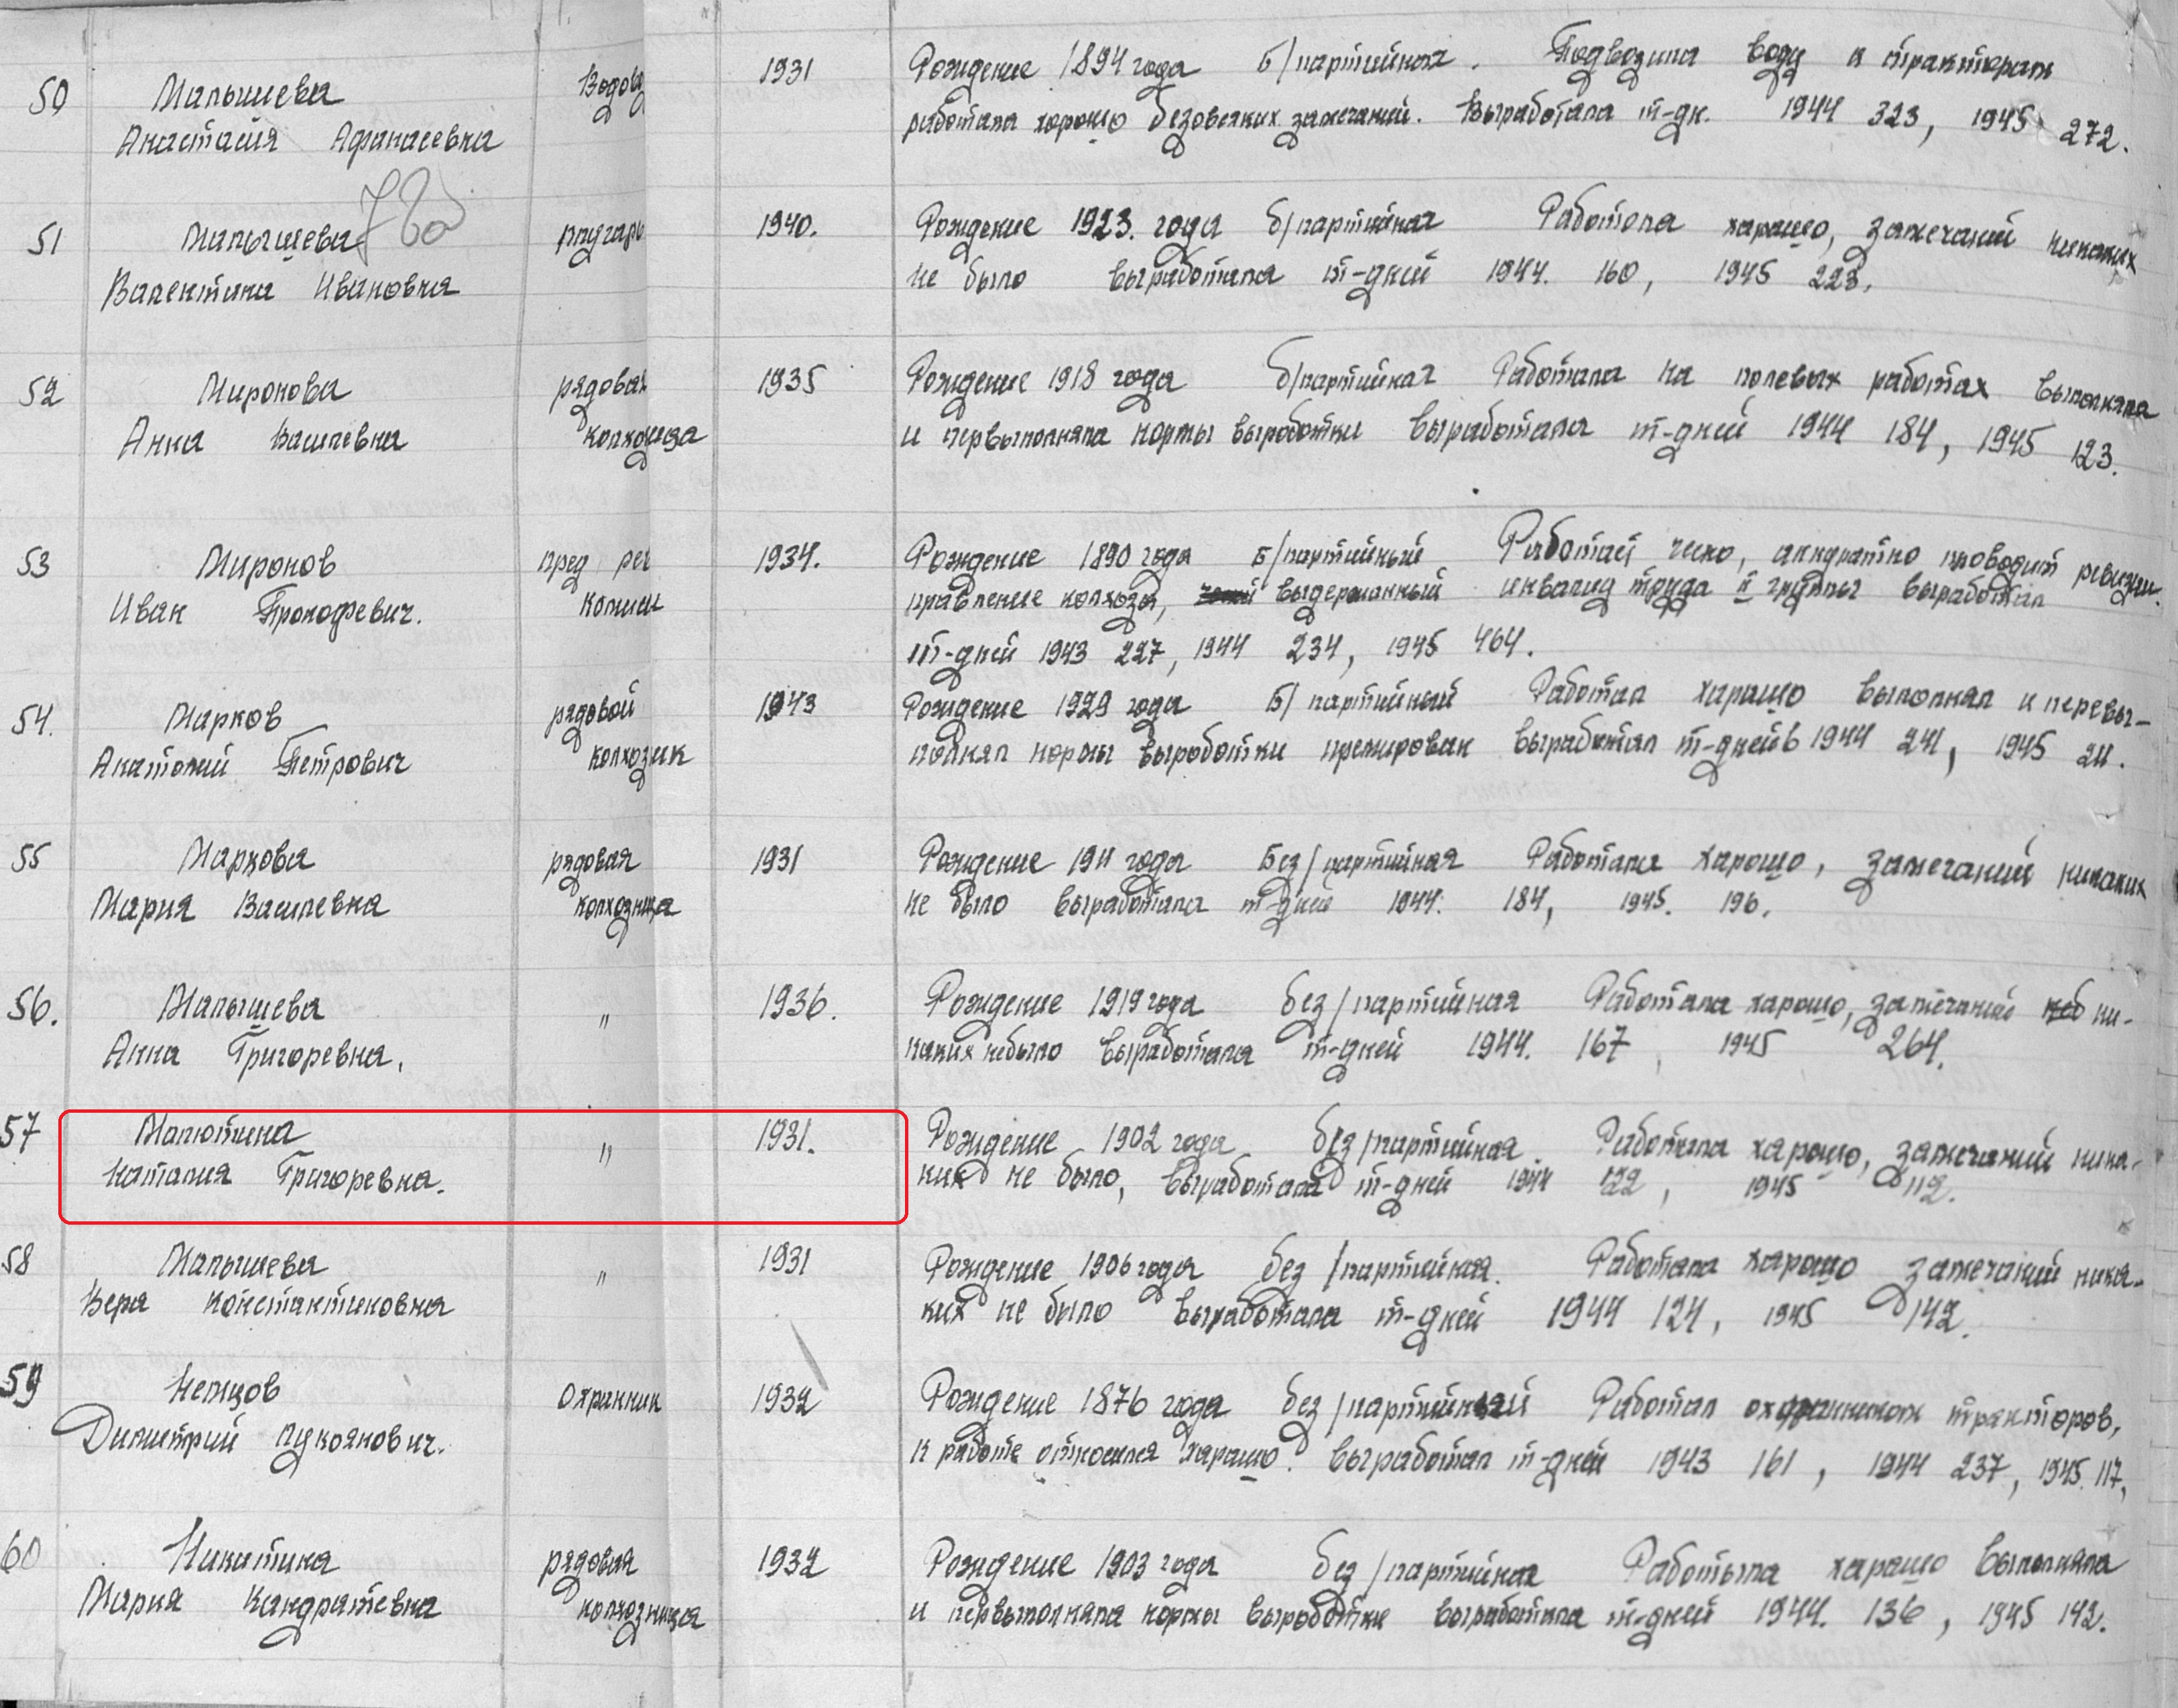 50 Малышева Водово 1931 Рождение 1894 года Б/партийная. Подвозила воду к тракторам
Анастасия Афанасевна работала хорошо безовсяких замечаний. Выработала т-дн. 1944 323, 1945 272.
51 Малышева 1940. Рождение 1923. года б/партийная Работала харашо, замечаний никаких
Валентина Ивановна не было выработала т-дней 1944. 160, 1945 223.
52 Миронова рядовая 1935 Рождение 1918 года б/партийная Работала на полевых работах выполняла
Анна Василевна колхозница и первыполняла нормы выработки выработала т-дней 1944 184, 1945 123.
53 Миронов пред рев 1934. Рождение 1890 года Б/партийный Работает проводит ревизии
Иван Прокофевич. комиси правление колхоза, выдержанный инвалид труда II группы выработал
т-дней 1943 227, 1944 234, 1945 464.
54. Марков рядовой 1943 Рождение 1929 года Б/партийный Работал харашо выполнял и перевы-
Анатолий Петрович колхозник полнял нормы выработки премирован выработал т-дней в 1944 241, 1945 211.
55 Маркова рядовая 1931 Рождение 1911 года Без/партийная Работала харошо, замечаний никаких
Мария Василевна колхозница не было выработала т-дней 1944. 184, 1945. 196.
56. Малышева " 1936. Рождение 1919 года без/партийная Работала харошо, замечаний ни-
Анна Григоревна. каких небыло выработала т-дней 1944. 167, 1945 264.
57 Малютина " 1931. Рождение 1902 года без/партийная. Работала харошо, замечаний ника-
Наталия Григоревна. ких не было, выработала т-дней 1944 1945 112.
58 Малышева " 1931 Рождение 1906 года без/партийная. Работала харашо замечаний ника-
Вера Константиновна ких не было выработала т-дней 1944 124, 1945 142.
59 Немцов Охранник 1932 Рождение 1876 года без/партийный Работал охранником тракторов,
Димитрий Лукоянович. к работе относился харашо. выработал т-дней 1943 161, 1944 237, 1945. 117,
60 Никитина рядовая 1932 Рождение 1903 года без/партийная Работала харашо выполняла
Мария Кандратевна колхозница и первыполняла нормы выработки выработала т-дней 1944. 136, 1945 142.